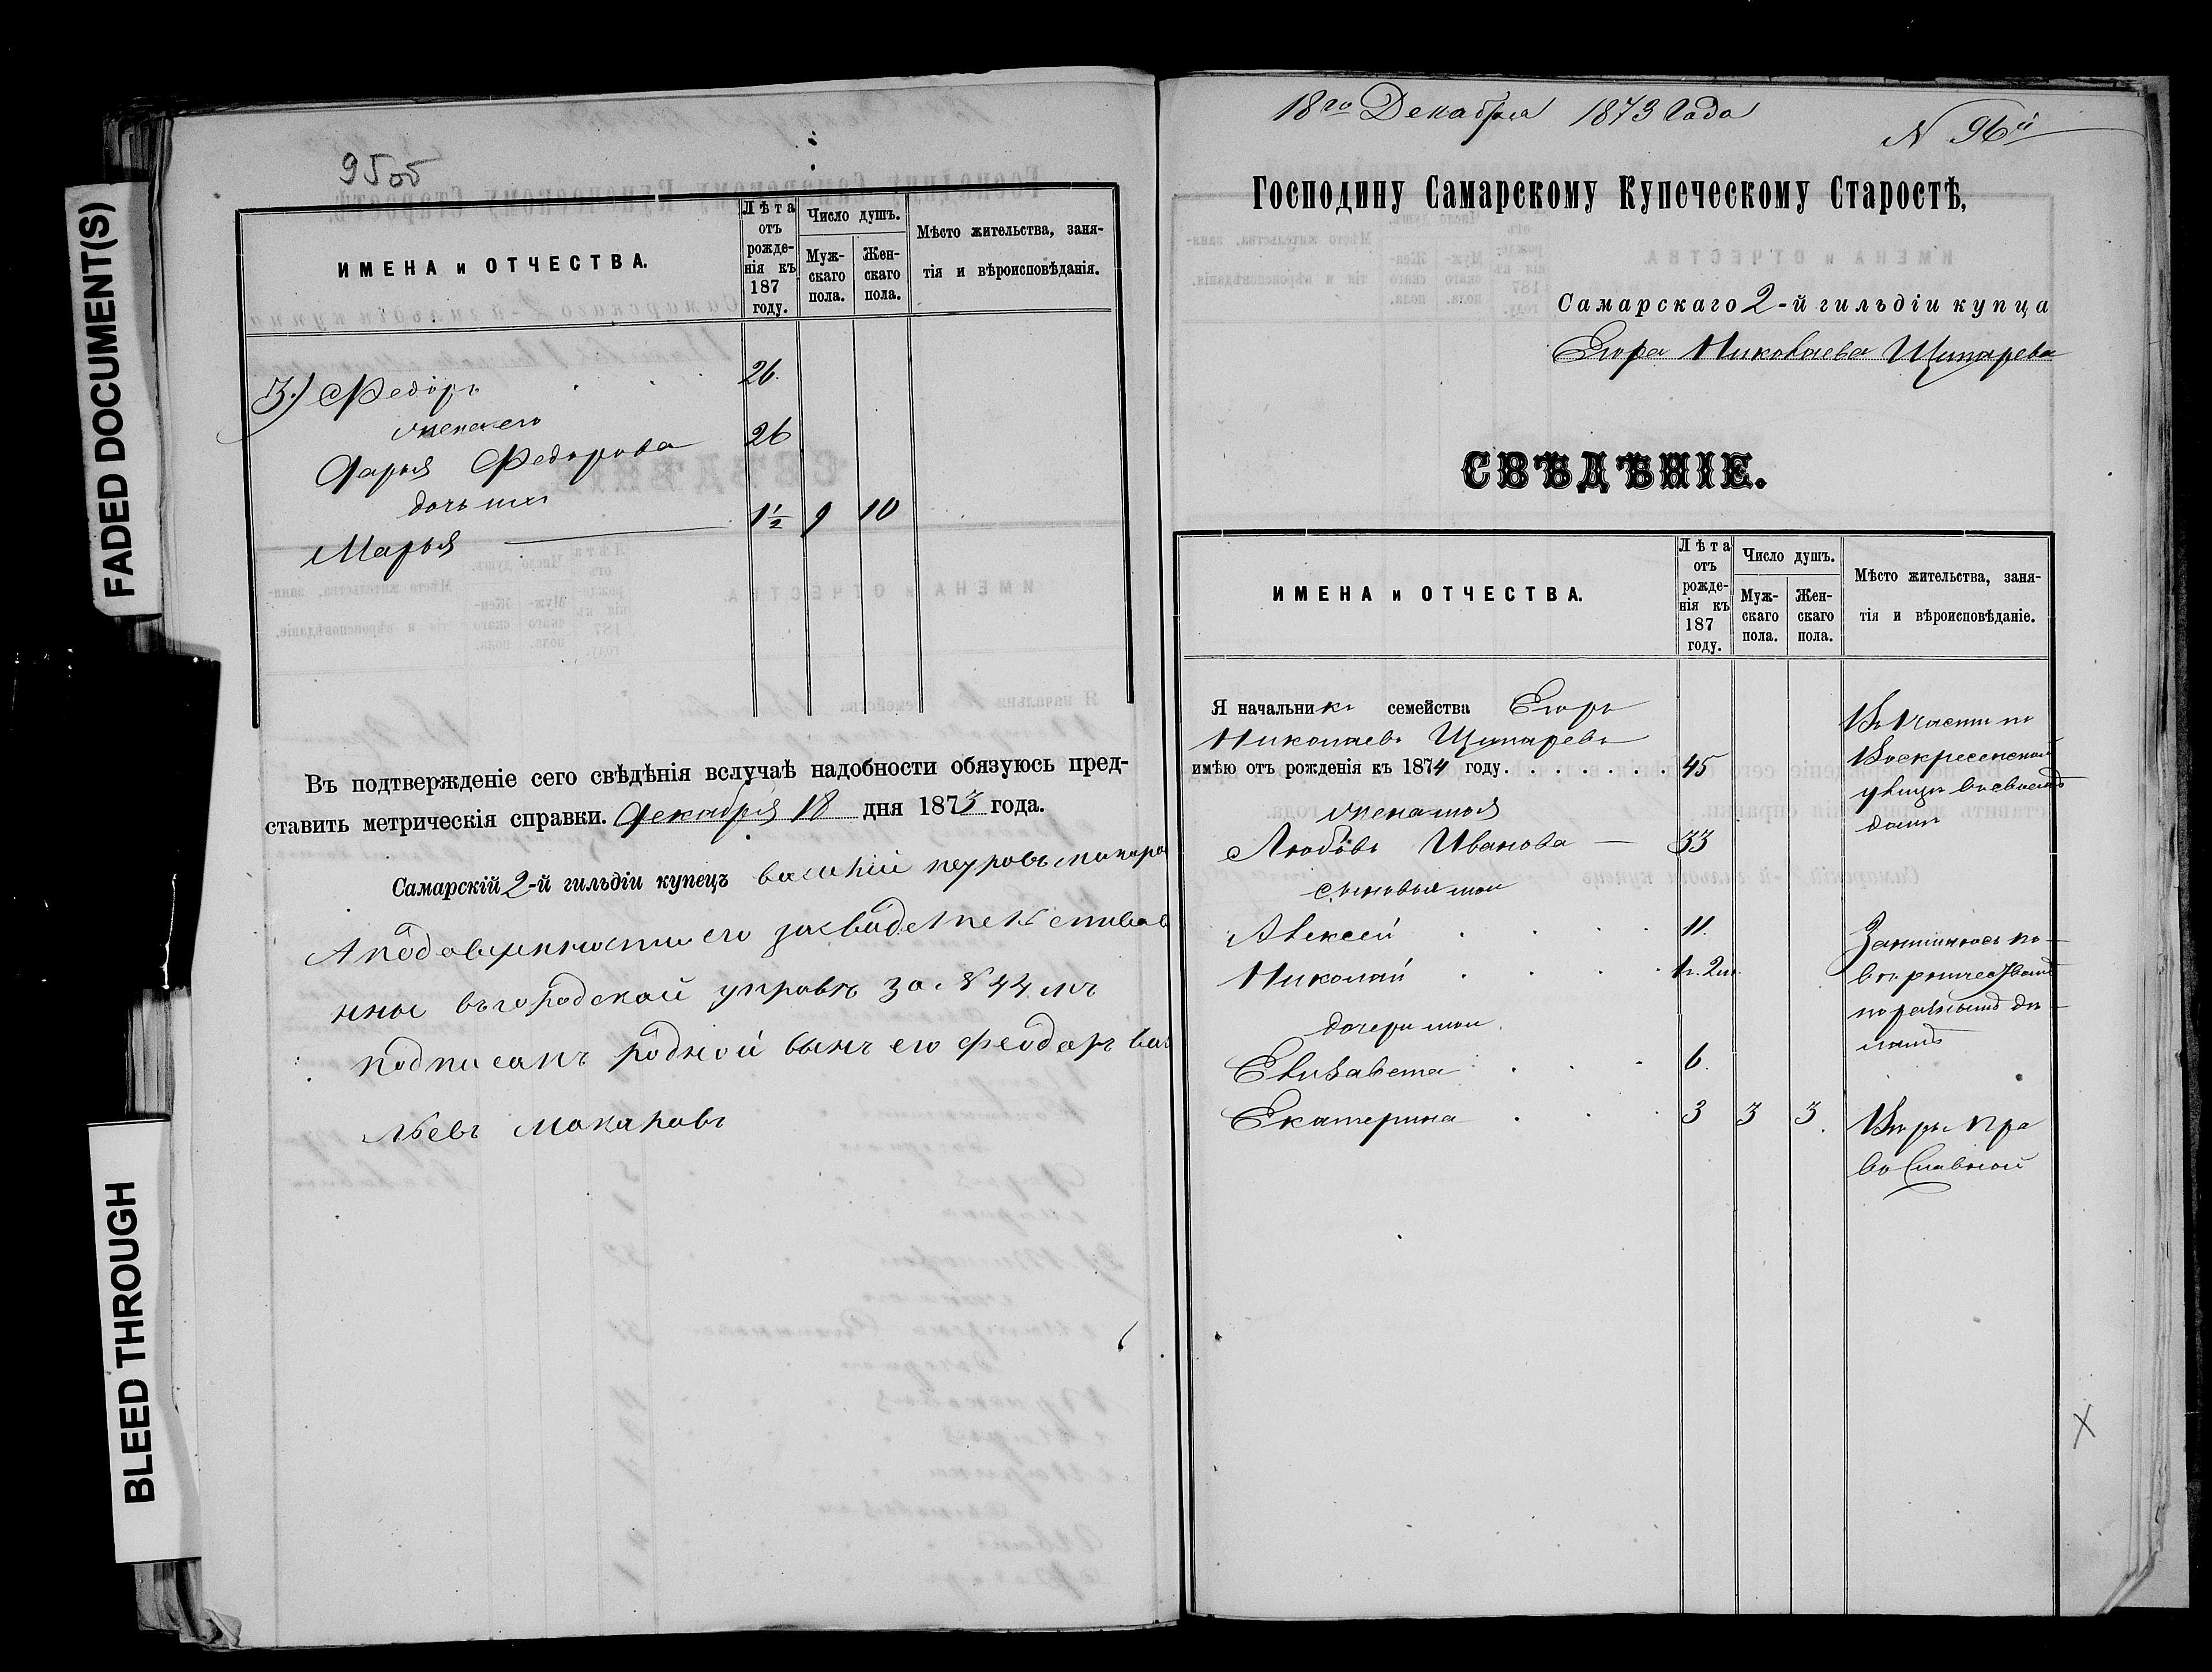 FADED DOCUMENT(S)
BLEED THROUGH
95 об
ИМЕНА и ОТЧЕСТВА.
Лѣта отъ рожденія къ 187 году.
Число душъ.
Мужскаго пола.
Женскаго пола.
Мѣсто жительства, занятія и вѣроисповѣданія.
3.) Федоръ 26.
жена его
Дарья Федорова 26
дочь ихъ
Марья 1½ 9 10
Въ подтвержденіе сего свѣдѣнія вслучаѣ надобности обязуюсь пред-
ставить метрическія справки. Декабря 18 дня 1873 года.
Самарскій 2-й гильдіи купецъ василий петровъ макаро
А подоверенности его засвидетелствова
нные въгородской управѣ за № 44 мъ
подписалъ родной сынъ его феодоръ вас
льевъ макаровъ
18го Декабря 1873 Года
N 96й
Господину Самарскому Купеческому Старостѣ,
Самарскаго 2-й гильдіи купца
Егора Николаева Щипарева
СВѢДѢНІЕ.
ИМЕНА и ОТЧЕСТВА.
Лѣта отъ рожденія къ 187 году.
Число душъ.
Мужскаго пола.
Женскаго пола.
Мѣсто жительства, занятія и вѣроисповѣданіе.
Я начальникъ семейства Егоръ
Николаевъ Щипаревъ
имѣю отъ рожденія къ 1874 году. . . . . . . 45
жена моя
Любовь Иванова — 33
сыновья мои
Алексей 11.
Николай 1г. 2м.
дочери мои
Елизавета 6.
Екатерина 3 3 3.
Въ 1 части по
Воскресенской
улицѣ въ своемъ
домѣ
Занимаюсь по-
по разнымъ дѣ-
ламъ
Вѣры Пра
во Славной